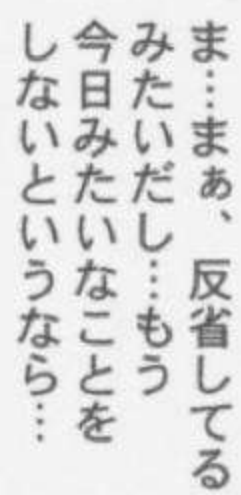 ま…まぁ、反省してる
みたいだし…もう
今日みたいなことを
しないというなら…